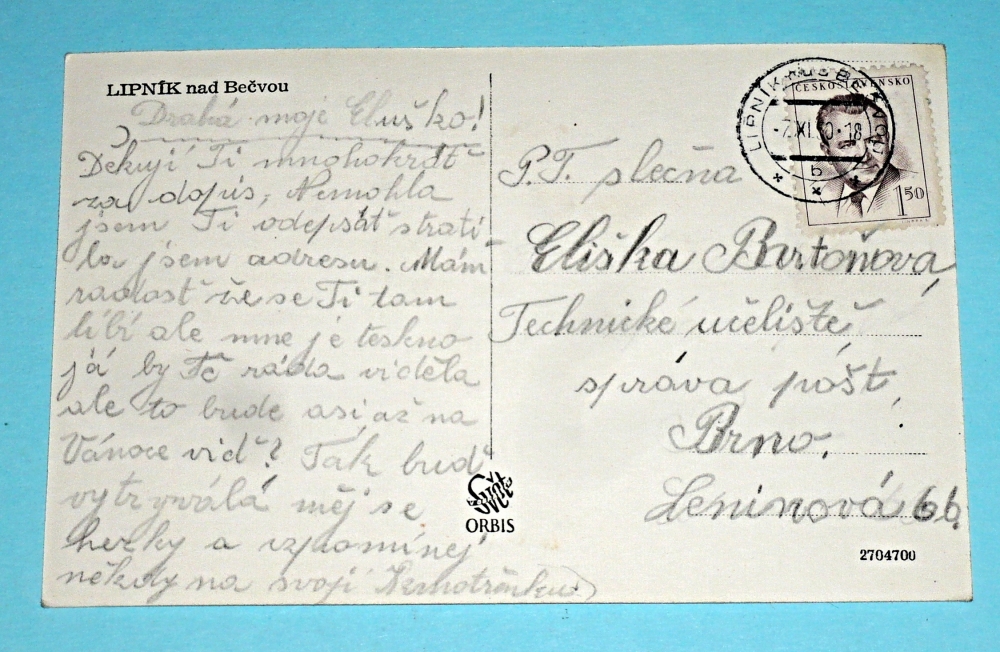 LIPNÍK nad Bečvou
Drahá moje Eluško!
Dekují Ti mnohokrát
za dopis, Nemohla
jsem Ti odepsát strati
la jsem adresu. Mám
radost že se Ti tam
líbí ale mne je teskno
já by Tě ráda viděla
ale to bude asi až na
Vánoce viď? Tak buď
vytrvalá měj se
hezky a vzpomínej
někdy na svojí
LIPNÍK NAD BEČVOU
-7.XI. 0-18
b
ČESKOSLOVENSKO
1 50
P.T. slečna
Eliška Bartoňová,
Technické učeliště
správa pošt,
Brno,
Leninová 66.
Svět
ORBIS
2704700